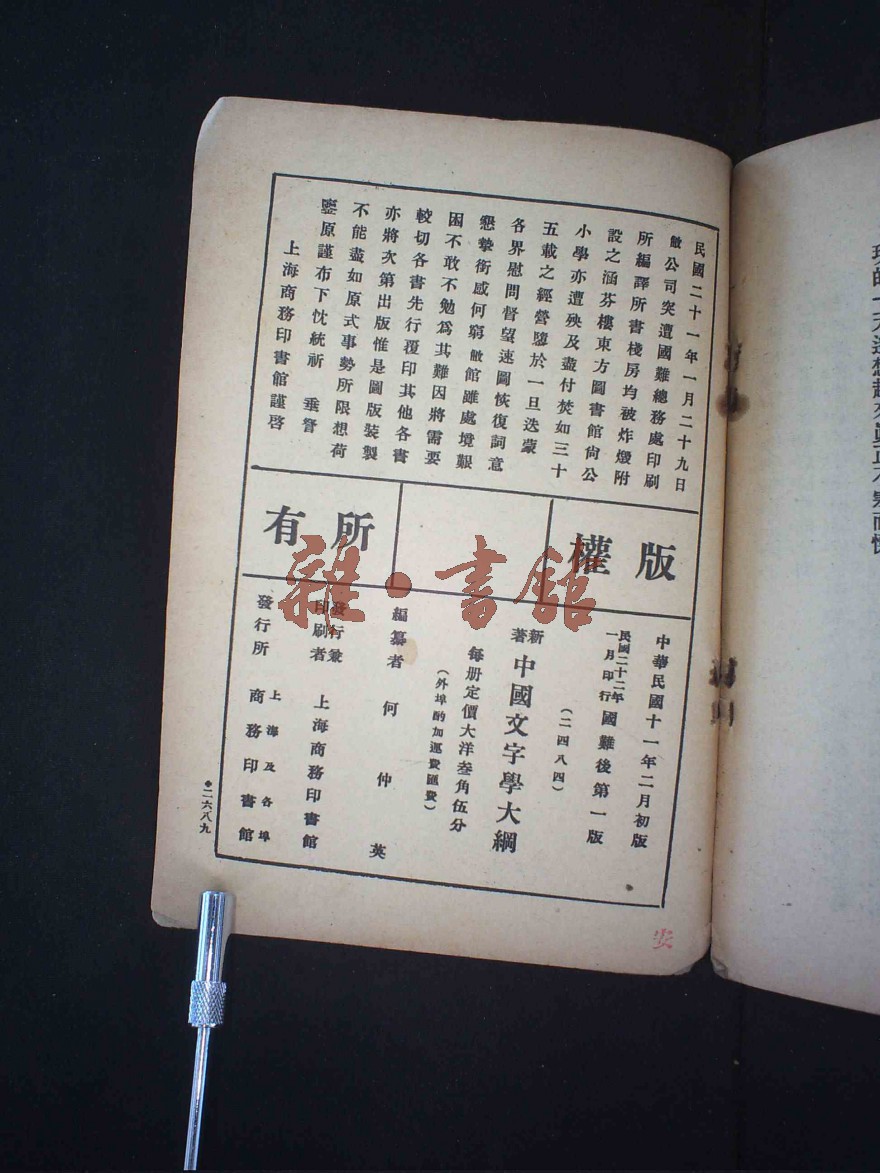 民國二十一年一月二十九日
敝公司突遭國難總務處印刷
所編譯所書棧房均被炸燬附
設之涵芬樓東方圖書館尙公
小學亦遭殃及盡付焚如三十
五載之經營隳於一旦迭蒙
各界慰問督望速圖恢復詞意
懇摯銜感何窮敝館雖處境艱
困不敢不勉爲其難因將需要
較切各書先行覆印其他各書
亦將次第出版惟是圖版裝製
不能盡如原式事勢所限想荷
鑒原謹布下忱統祈 垂詧
上海商務印書館謹啓
版權所有
中華民國十一年二月初版
民國二十二年一月印行 國難後第一版
(二四八四)
新著 中國文字學大綱
每册定價大洋叁角伍分
(外埠酌加運費匯費)
編纂者 何仲英
發行兼印刷者 上海商務印書館
發行所 上海及各埠 商務印書館
◆二六八九
雜·書館
安